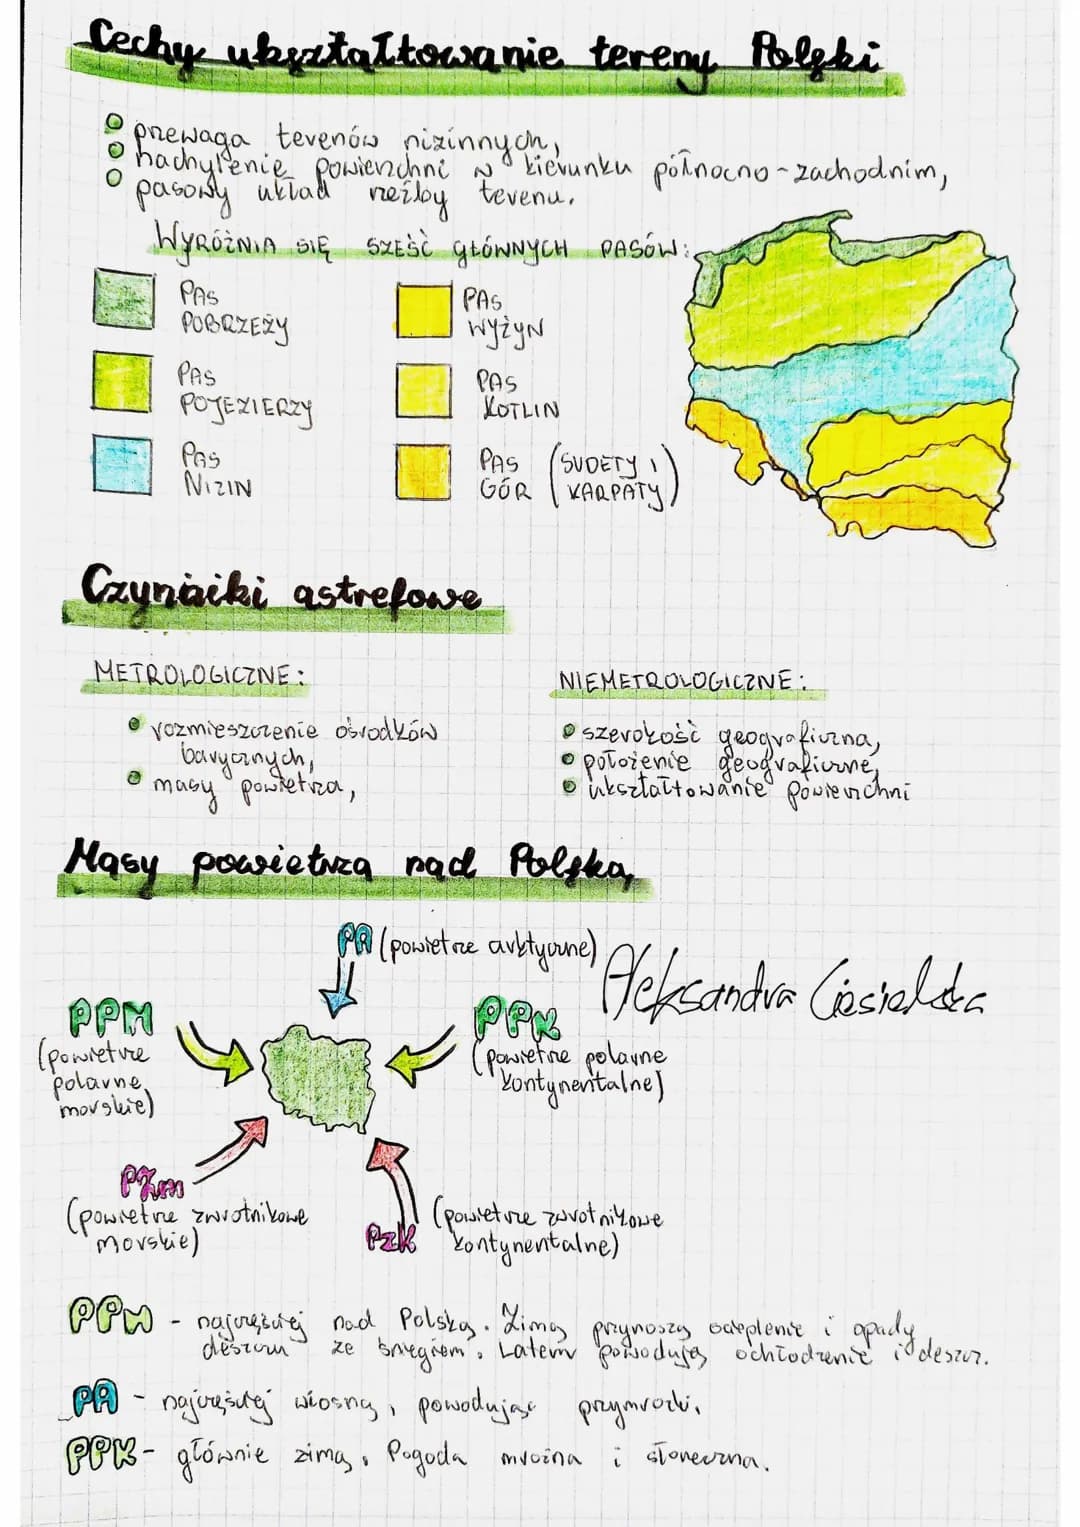 Cechy ukształtowanie tereny Polski
przewaga terenów nizinnych,
nachylenie powierzchni w kierunku północno-zachodnim,
pasowy układ rzeźby terenu.
WYRÓŻNIA SIĘ SZEŚĆ GŁÓWNYCH PASÓW:
PAS
POBRZEŻY
PAS
WYŻYN
PAS
POJEZIERZY
PAS
KOTLIN
PAS
NIZIN
PAS (SUDETY I
GÓR KARPATY)
Czynniki astrefowe
METROLOGICZNE:
rozmieszczenie ośrodków
barycznych,
masy powietrza,
NIEMETROLOGICZNE:
szerokość geograficzna,
położenie geograficzne,
ukształtowanie powierzchni
Masy powietrza nad Polską
PA (powietrze arktyczne)
Aleksandra Ciesielska
PPM
(powietrze
polarne
morskie)
PPK
(powietrze polarne
kontynentalne)
PZm
(powietrze zwrotnikowe
morskie)
PzK (powietrze zwrotnikowe
kontynentalne)
PPM - najczęściej nad Polską. Zimą przynoszą ocieplenie i opady
deszczu ze śniegiem. Latem powodują ochłodzenie i deszcz.
PA - najczęściej wiosną, powodując przymrozki.
PPK - głównie zimą. Pogoda mroźna i słoneczna.